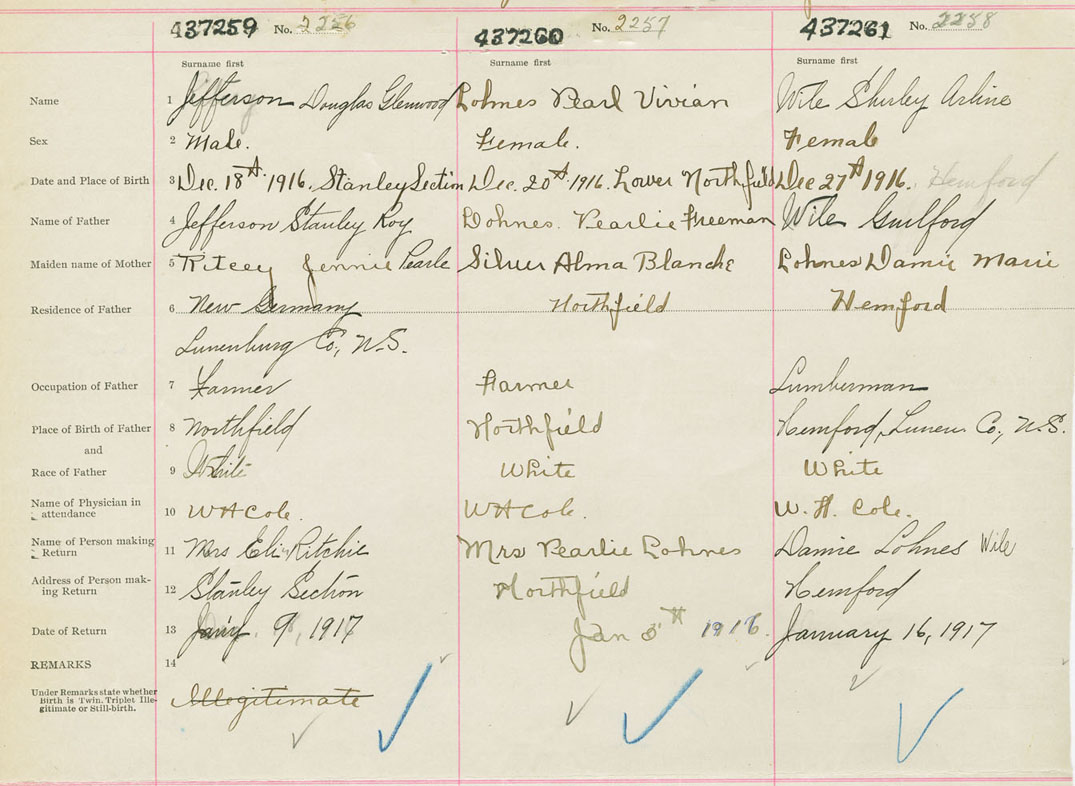 437259 No. 2256 437260 No. 2257 437261 No. 2258
Surname first Surname first Surname first
Name 1 Jefferson Douglas Glenwood Lohnes Pearl Vivian Wile Shirley Arline
Sex 2 Male. Female. Female
Date and Place of Birth 3 Dec. 18th 1916. Stanley Section Dec. 20th 1916. Lower Northfield Dec 27th 1916. Hemford
Name of Father 4 Jefferson Stanley Roy Lohnes. Pearlie Freeman Wile Guilford
Maiden name of Mother 5 Ritcey Jennie Pearle Silver Alma Blanche Lohnes Damie Marie
Residence of Father 6 New Germany Northfield Hemford
Lunenburg Co., N.S.
Occupation of Father 7 Farmer Farmer Lumberman
Place of Birth of Father 8 Northfield Northfield Hemford, Lunen Co., N.S.
and
Race of Father 9 White White White
Name of Physician in
attendance 10 W H Cole. W H Cole. W. H. Cole.
Name of Person making
Return 11 Mrs Eli Ritchie Mrs Pearlie Lohnes Damie Lohnes Wile
Address of Person mak-
ing Return 12 Stanley Section Northfield Hemford
Date of Return 13 9, 1917 Jan 5th 1916. January 16, 1917
REMARKS 14
Under Remarks state whether
Birth is Twin. Triplet Ille-
gitimate or Still-birth. Illegitimate